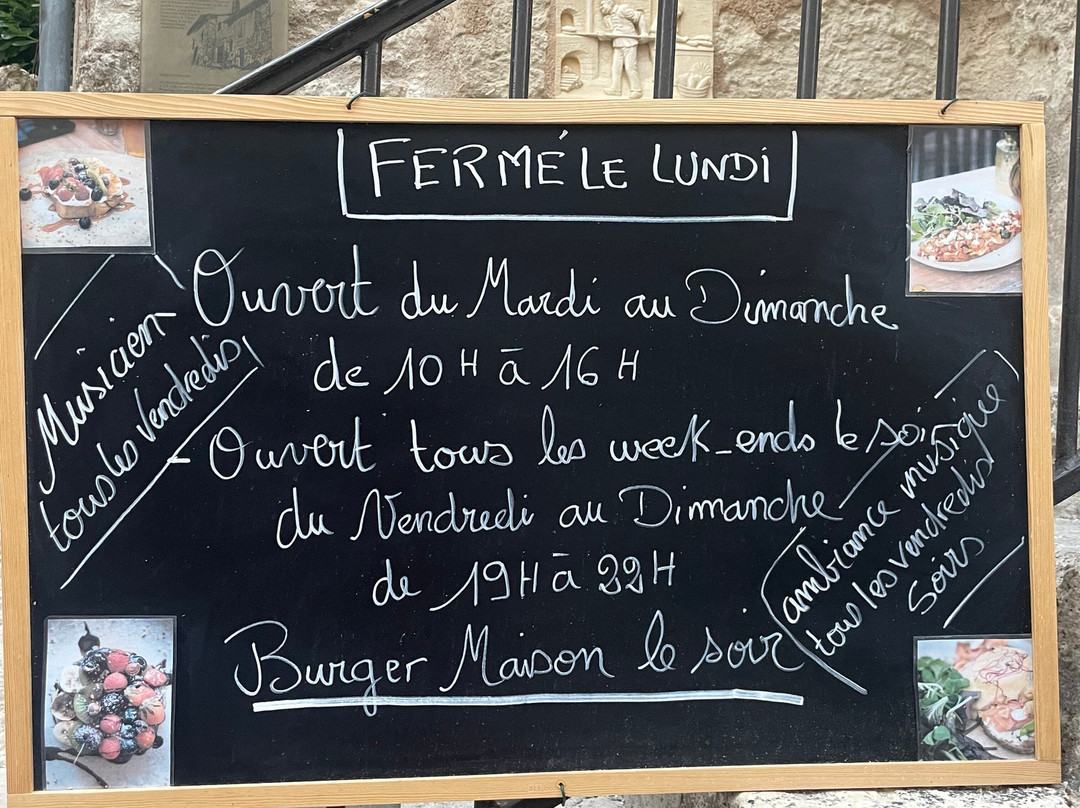 FERMÉ LE LUNDI
Ouvert du Mardi au Dimanche
de 10H à 16H
- Ouvert tous les week-ends le soir
du Vendredi au Dimanche
de 19H à 22H
Burger Maison le soir
Musicien
tous les vendredis
ambiance musique
tous les vendredis
soirs